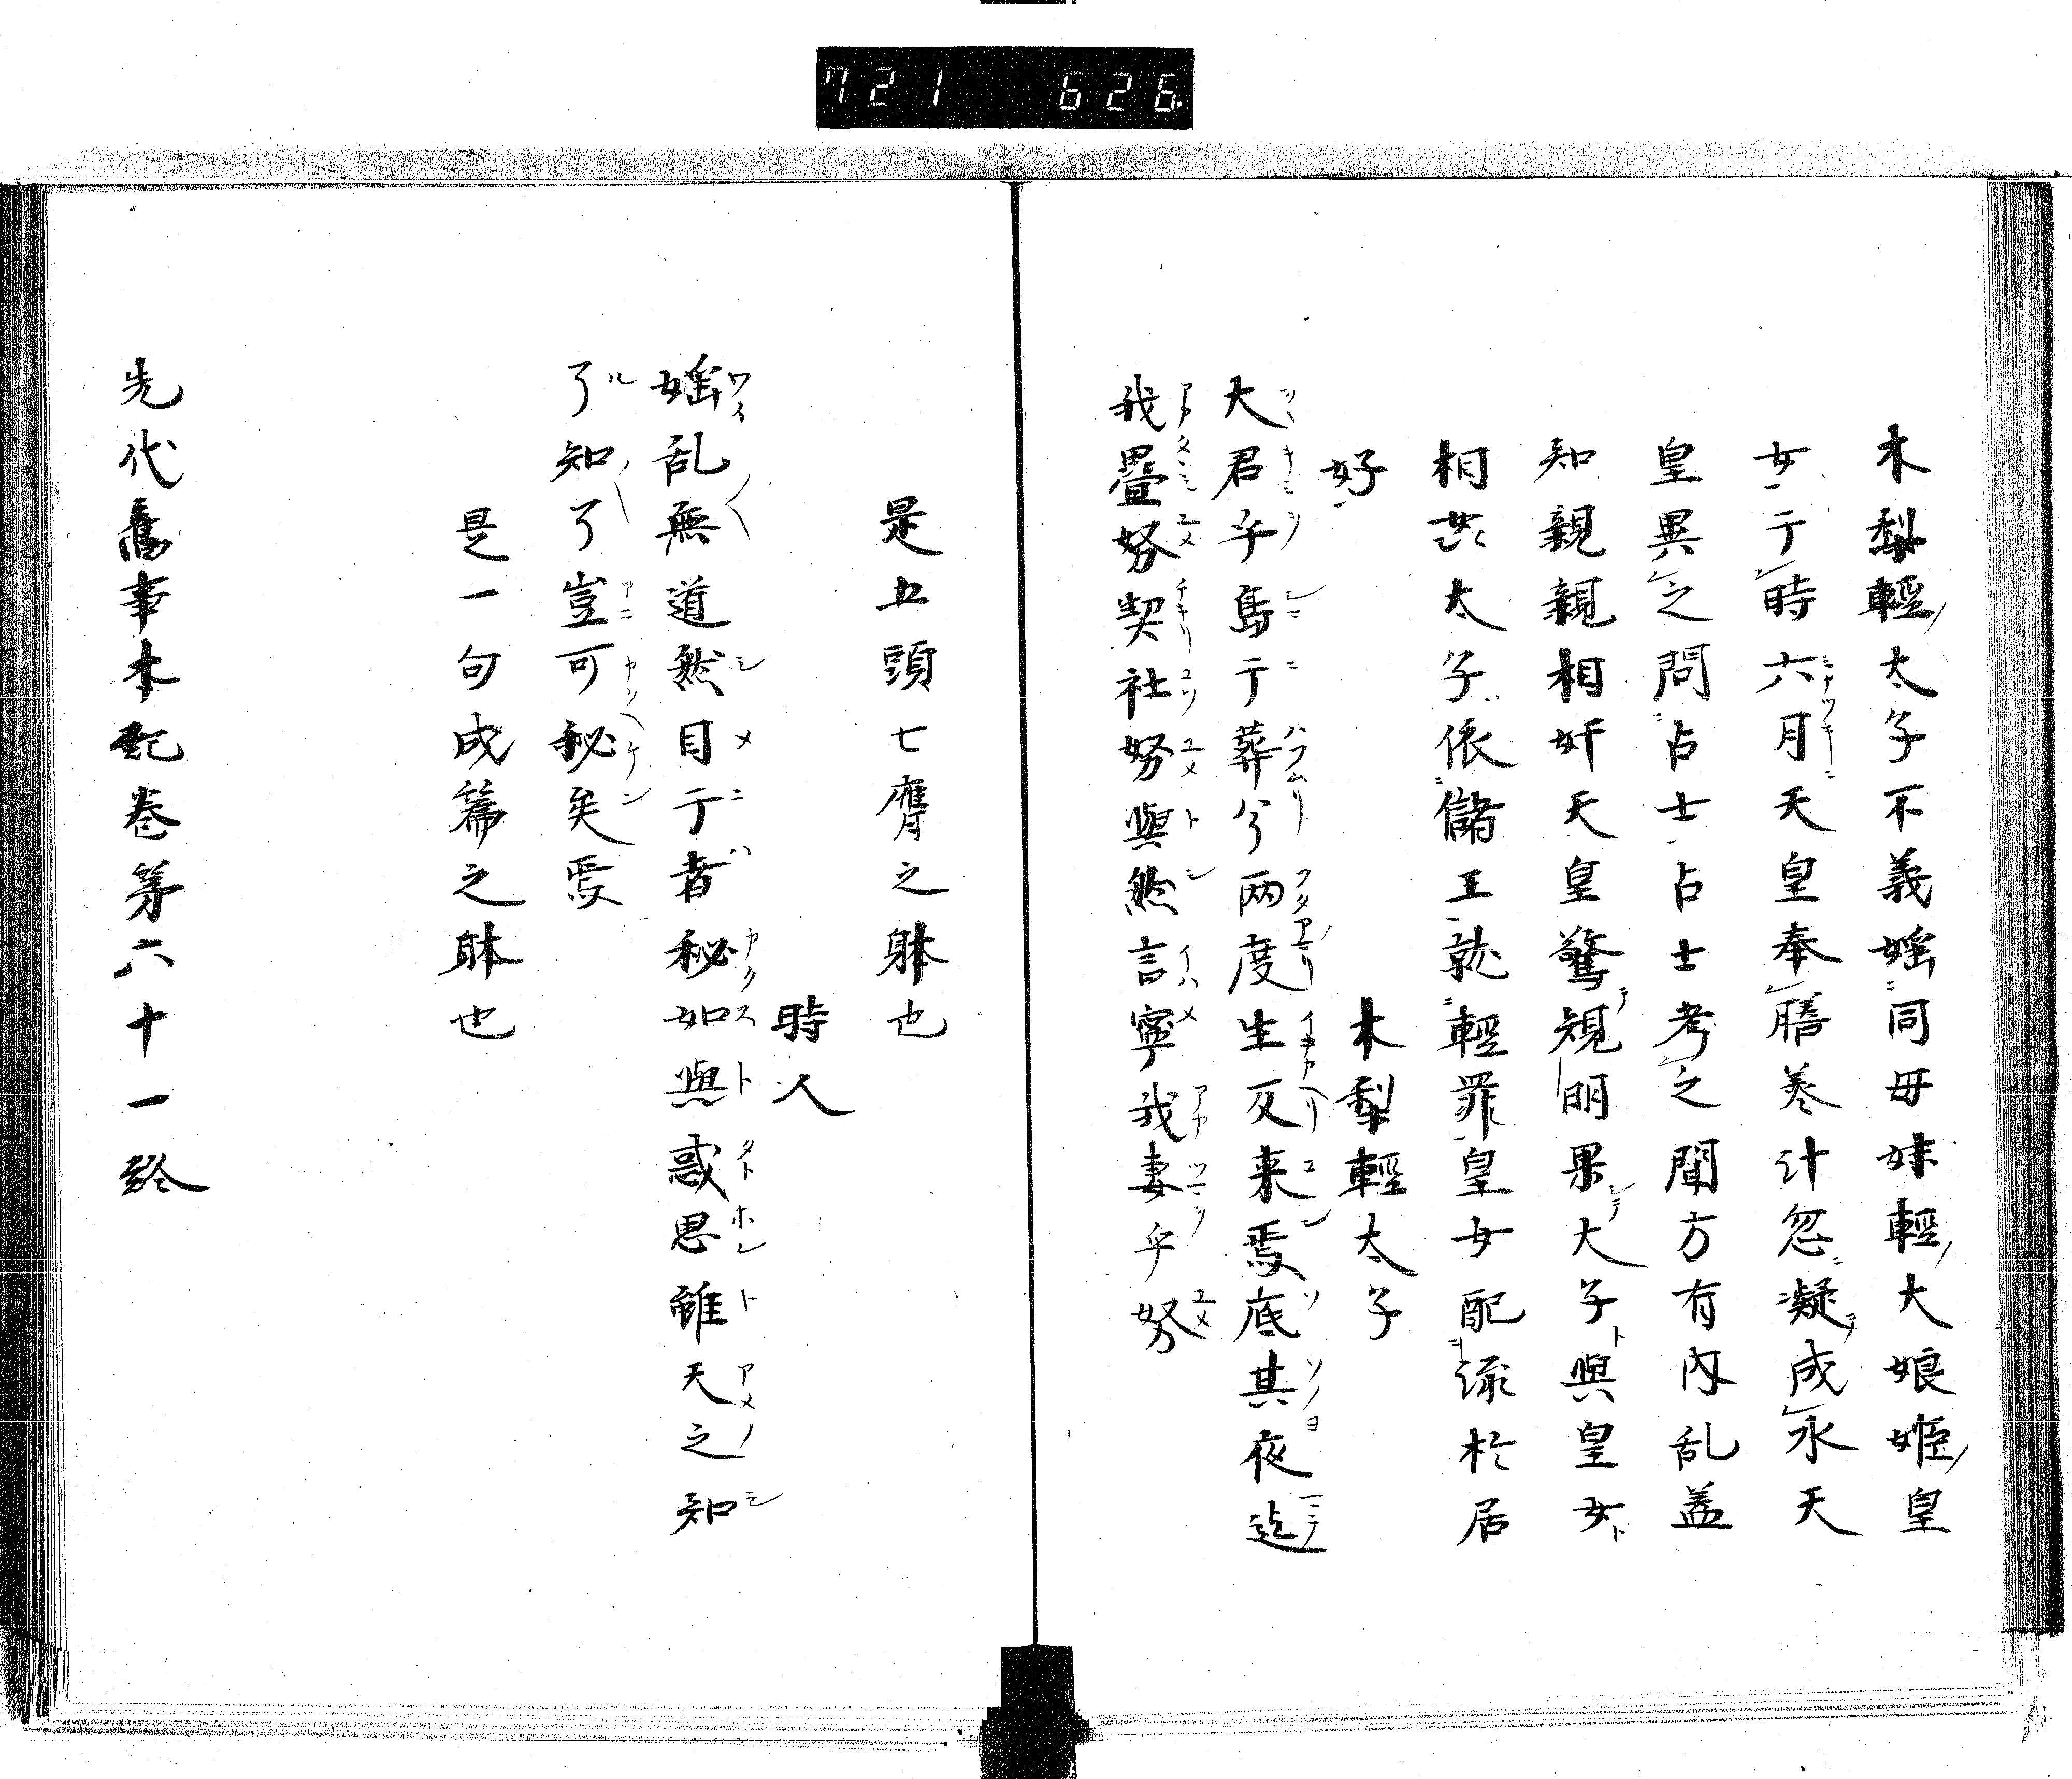 721 626
木梨輕太子不義婬同毋妹輕大娘姫皇
女于時六月天皇奉膳羹汁忽凝成氷天
皇異之問占士占士考之聞方有内乱盖
知親親相奸天皇驚視明果大子與皇女
相共太子依儲王就輕罪皇女配流於居
好
木梨輕太子
大君乎島于葬兮両度生反来焉底其夜迄
我疊努契社努與然言寧我妻乎努
是五頭七膺之躰也
時人
婬乱無道然目于者秘如與惑思雖天之知
了知了豈可秘矣焉
是一句成篇之躰也
先代舊事本紀巻第六十一終